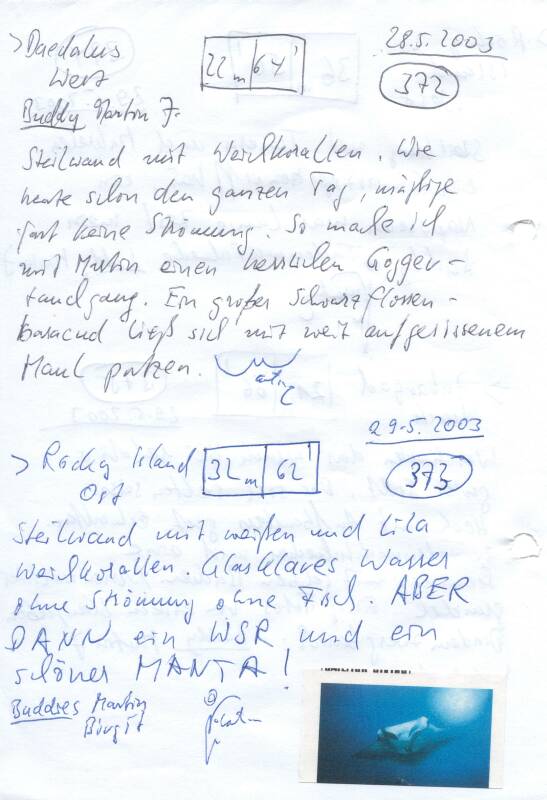 28.5.2003
> Daedalus
West
22 m 64'
372
Buddy Martin F.
Steilwand mit Weichkorallen. Wie
heute schon den ganzen Tag, mäßige
fast keine Strömung. So mache ich
mit Martin einen herrlichen
tauchgang. Ein großer Schwarzflossen-
baracud ließ sich mit weit aufgerissenem
Maul putzen.
29.5.2003
> Rocky Island
Ost
32 m 62'
373
Steilwand mit weißen und lila
Weichkorallen. Glasklares Wasser
ohne Strömung ohne Fisch. ABER
DANN ein WSR und ein
schöner MANTA!
Buddies Martin
Birgit